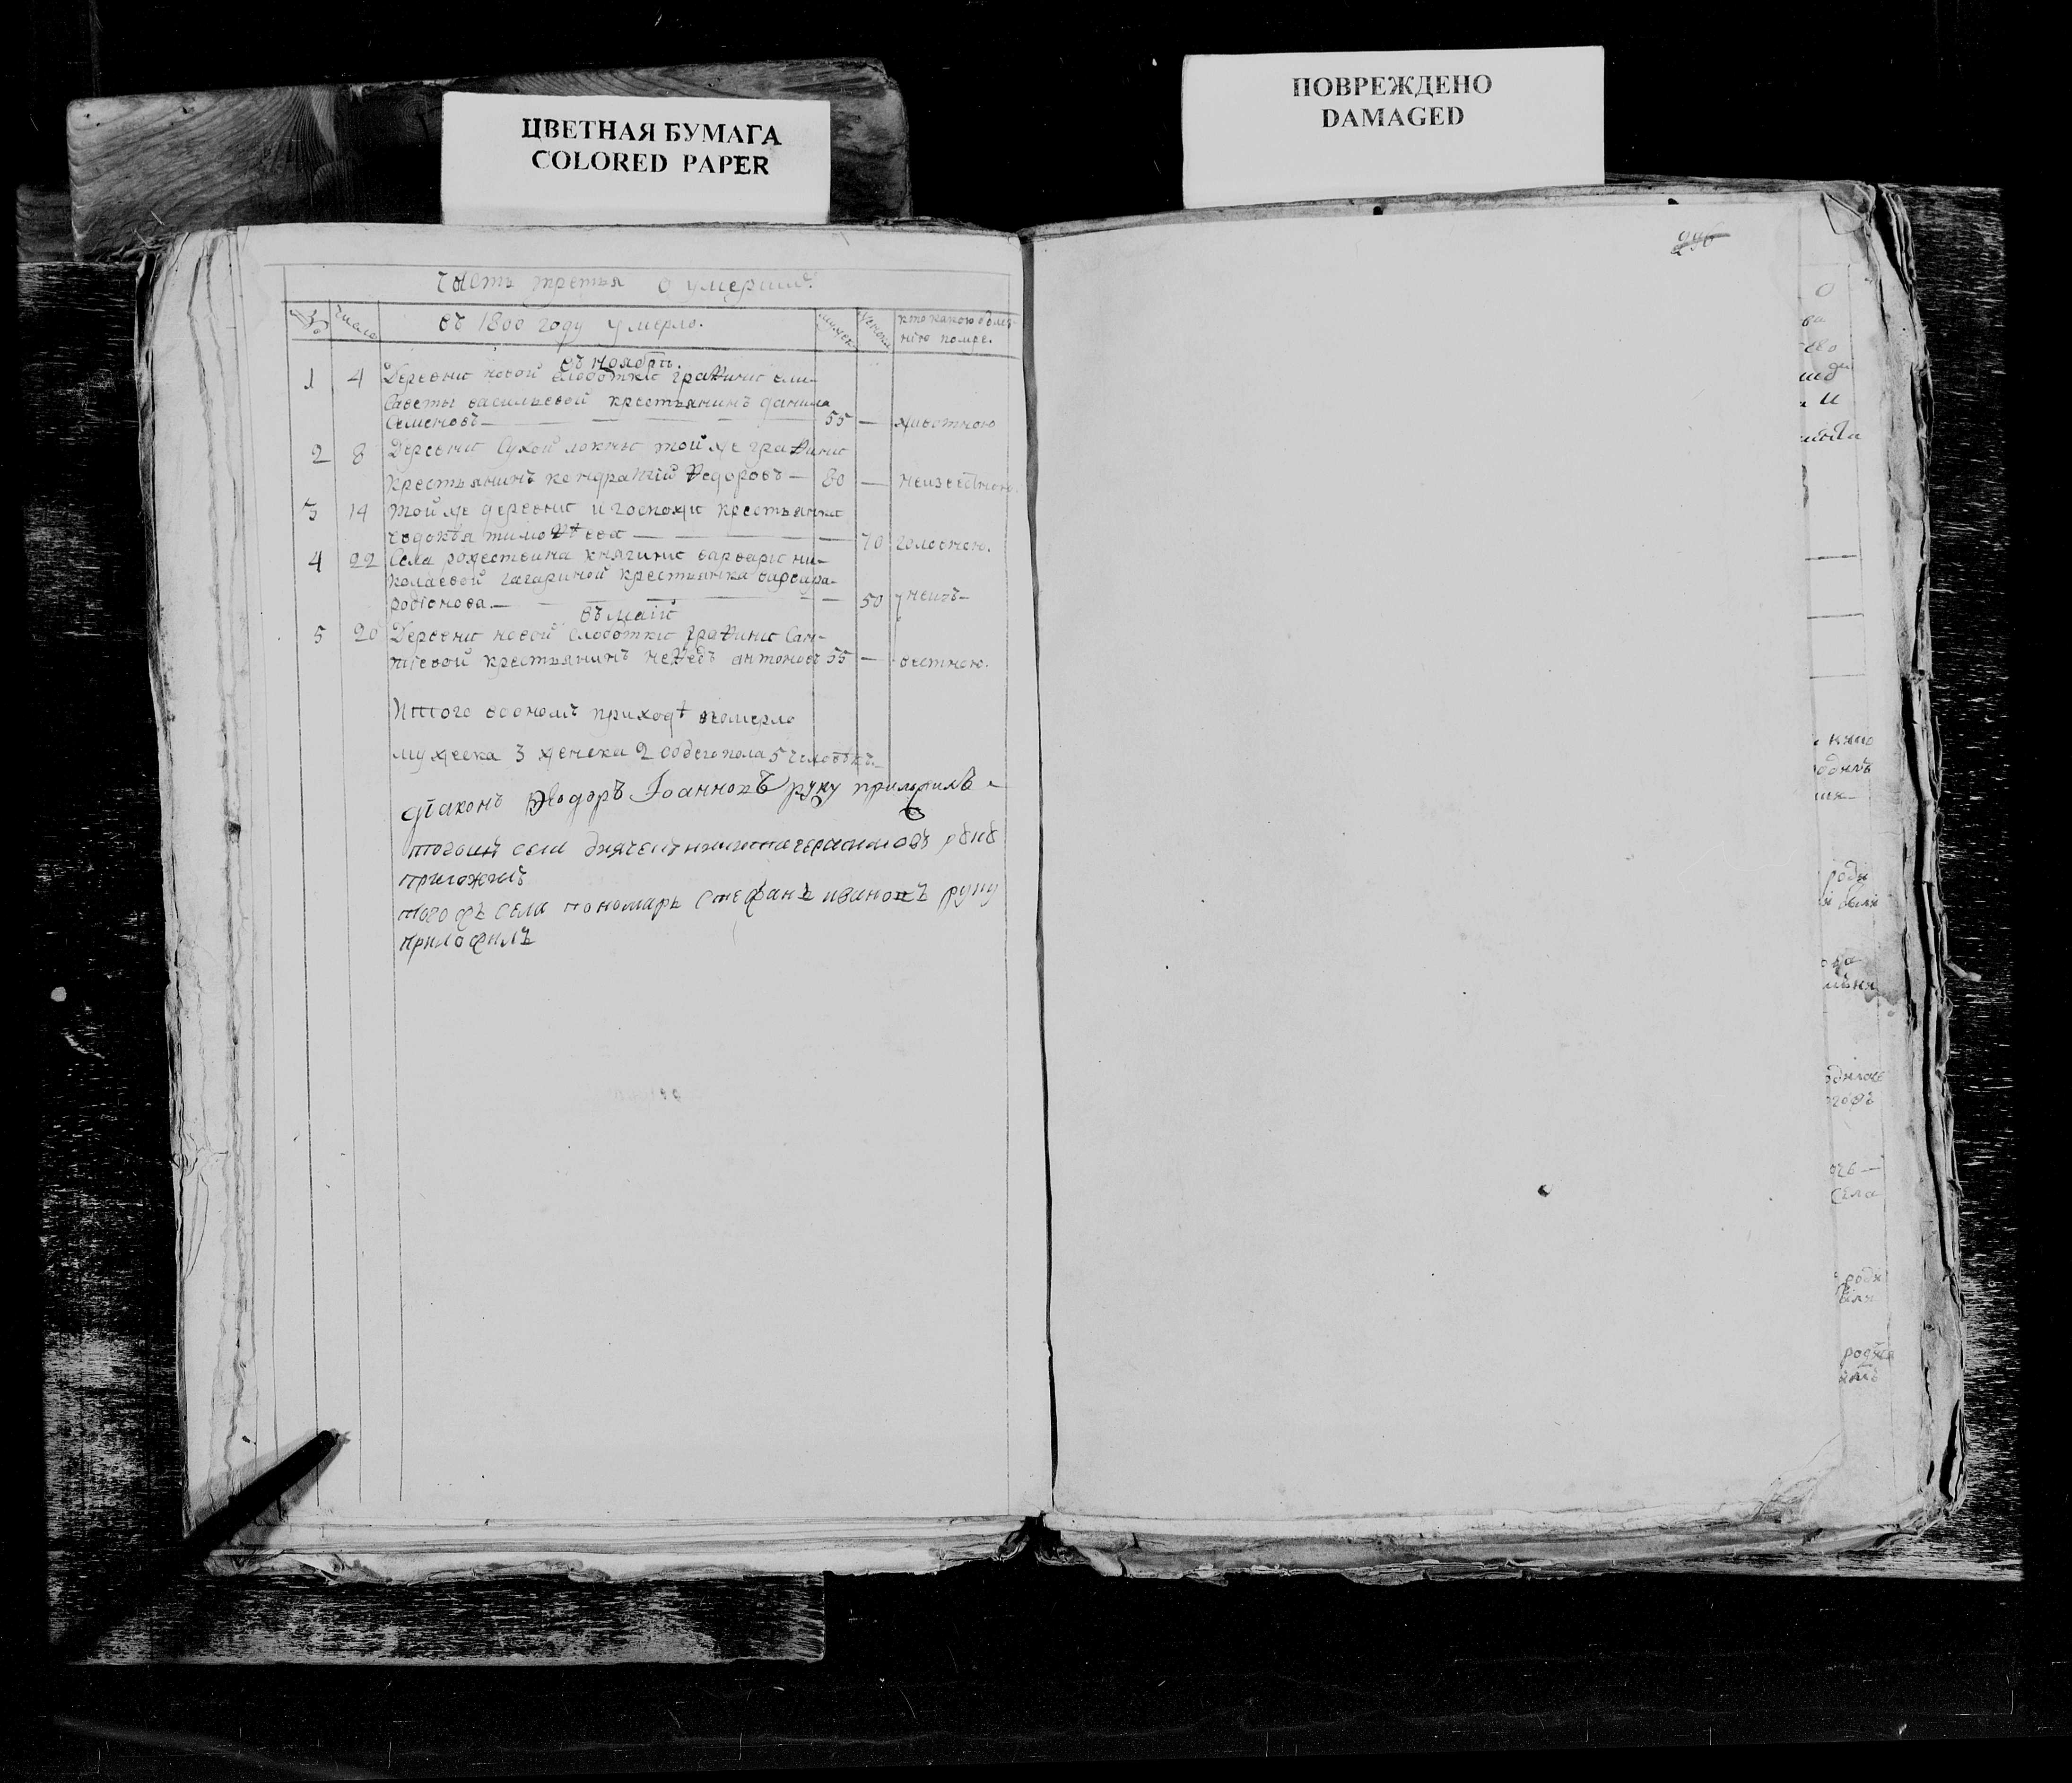 ЦВЕТНАЯ БУМАГА
COLORED PAPER
ПОВРЕЖДЕНО
DAMAGED
296
Часть третья о умершихъ.
№ число въ 1800 году умерло. мужск женска кто какою болез-
нію помре.
въ ноябрѣ.
1 4 Деревнѣ новой слоботкѣ графинѣ ели-
саветы васильевой крестьянинъ данила
Семеновъ — 55 — животною
2 8 Деревнѣ Сухой локнѣ той же графинѣ
крестьянинъ кондратій Ѳедоровъ — 80 — неизвестною.
3 14 той же деревнѣ и госпожѣ крестьянка
евдокѣя тимоѳѣева — 70 головною.
4 22 Села рожествина княгинѣ варварѣ ни-
колаевой гагариной крестьянка варвара
родіонова. — 50 неизъ-
въ маіѣ
5 20 Деревнѣ новой слоботкѣ графинѣ Сан-
тіевой крестьянинъ меѳедъ антоновъ 55 — вестною.
Иттого воономъ приходѣ померло
мужеска 3 женска 2 ообоего пола 5 человѣкъ.
діаконъ Ѳеодоръ Іоанновъ руку приложилъ
села герасимовъ рꙋкꙋ
приложилъ
того жъ села пономарь Стефанъ ивановъ руку
приложилъ
села